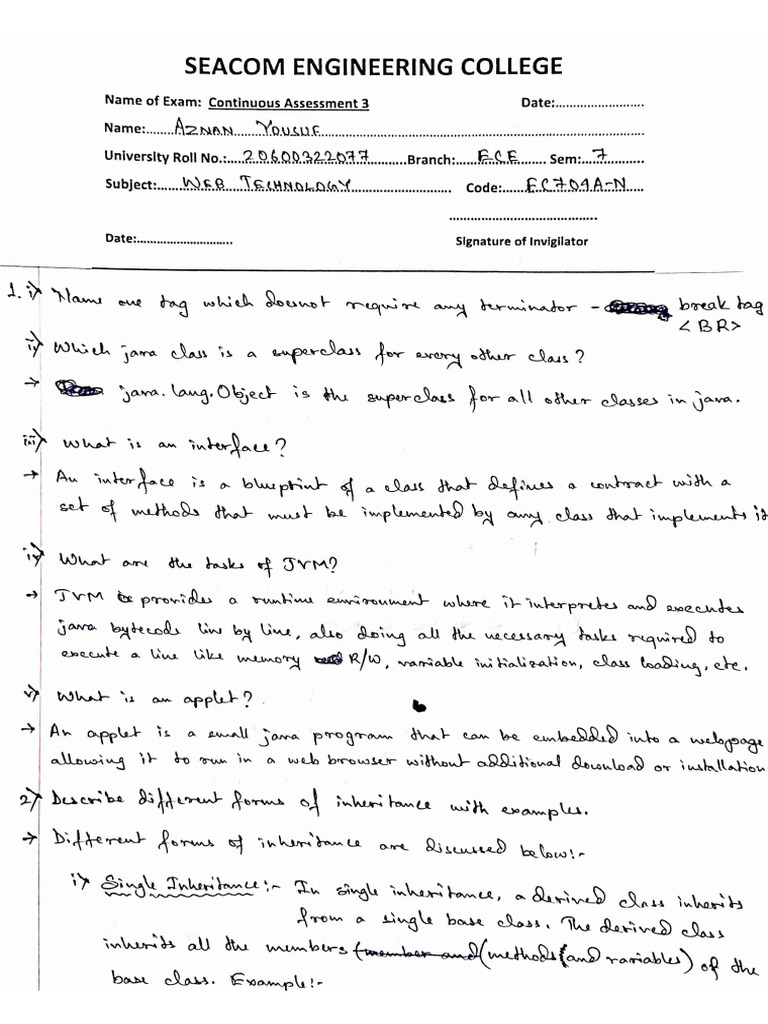 SEACOM ENGINEERING COLLEGE
Name of Exam: Continuous Assessment 3 Date:...........................
Name:........AZNAN YOUSUF..........
University Roll No.:.....20600322077..........Branch:......ECE........ Sem:...7...........
Subject:........WEB TECHNOLOGY.......... Code:.......EC704A-N.....
Signature of Invigilator
Date:.............................
1. i) Name one tag which doesnot require any terminator - break tag
<BR>
ii) Which java class is a superclass for every other class?
→ java.lang.Object is the superclass for all other classes in java.
iii) What is an interface?
→ An interface is a blueprint of a class that defines a contract with a
set of methods that must be implemented by any class that implements it
iv) What are the tasks of JVM?
→ JVM provides a runtime environment where it interpretes and executes
java bytecode line by line, also doing all the necessary tasks required to
execute a line like memory R/W, variable initialization, class loading, etc.
v) What is an applet?
→ An applet is a small java program that can be embedded into a webpage
allowing it to run in a web browser without additional download or installation
2) Describe different forms of inheritance with examples.
→ Different forms of inheritance are discussed below:-
i) Single Inheritance:- In single inheritance, a derived class inherits
from a single base class. The derived class
inherits all the members (member and (methods (and variables) of the
base class. Example:-